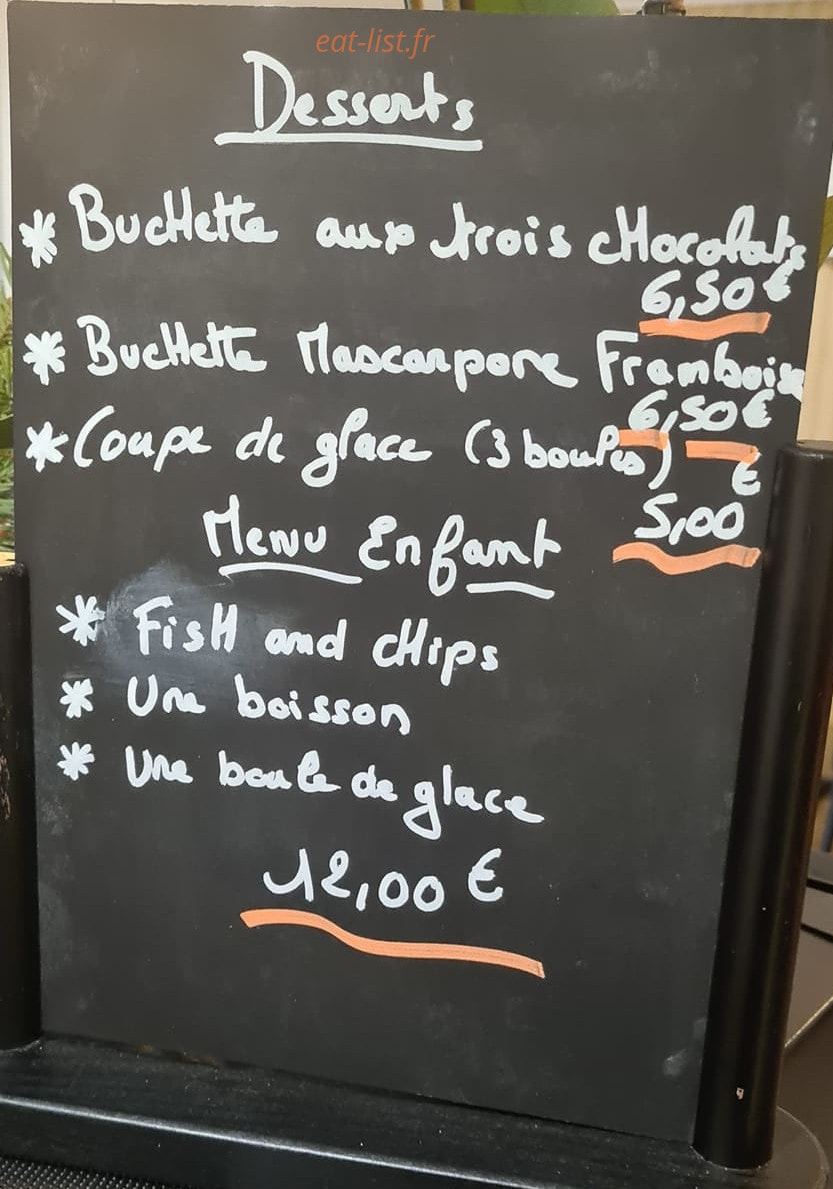 eat-list.fr
Desserts
* Buchette aux trois chocolats
6,50 €
* Buchette Mascarpone Framboise
6,50 €
* Coupe de glace (3 boules)
€
5,00
Menu Enfant
* Fish and chips
* Une boisson
* Une boule de glace
12,00 €